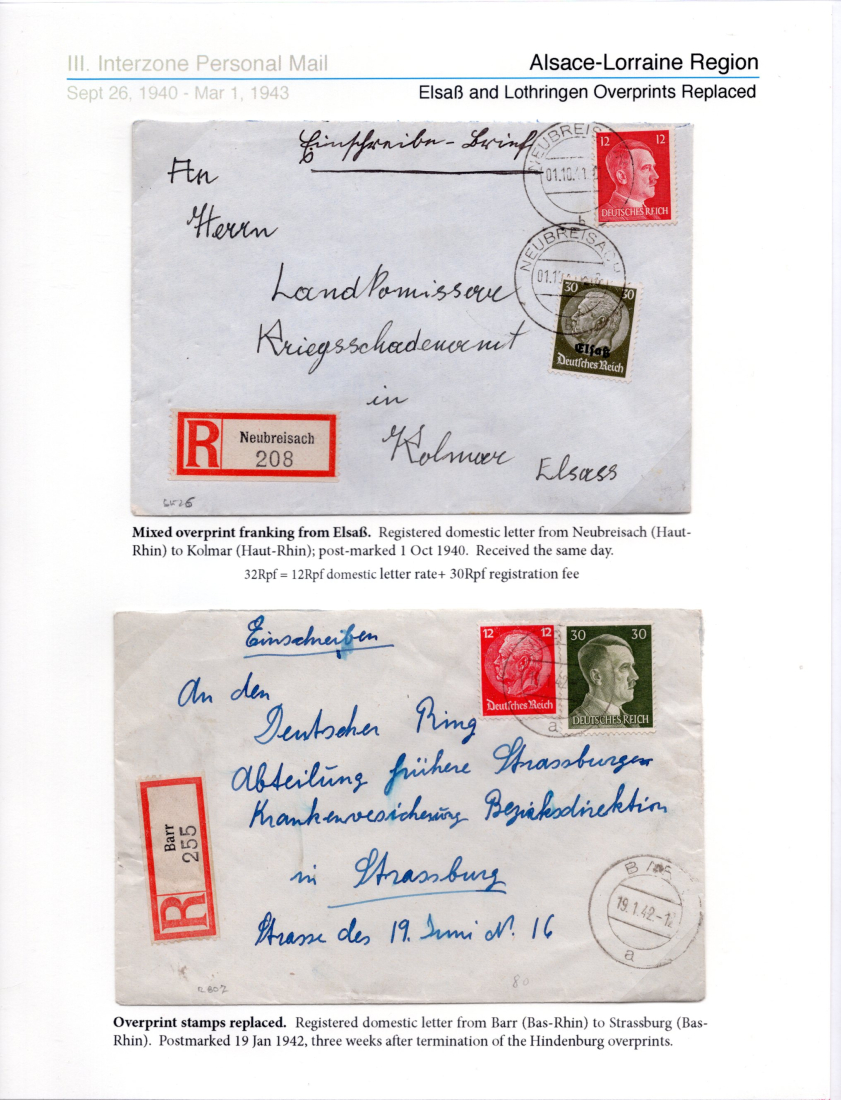 III. Interzone Personal Mail
Alsace-Lorraine Region
Sept 26, 1940 - Mar 1, 1943
Elsaß and Lothringen Overprints Replaced
Einschreibe-Brief
NEUBREIS
01.10.41
b
12 12
DEUTSCHES REICH
An
Herrn
NEUBREISAC
01.1
30 30
Elsaß
Deutsches Reich
Landkomissar
Kriegsschadenamt
in
Kolmar Elsass
R
Neubreisach
208
Mixed overprint franking from Elsaß. Registered domestic letter from Neubreisach (Haut-
Rhin) to Kolmar (Haut-Rhin); post-marked 1 Oct 1940. Received the same day.
32Rpf = 12Rpf domestic letter rate+ 30Rpf registration fee
Einschreiben
12 12
Deutsches Reich
30 30
DEUTSCHES REICH
a
An den
Deutscher Ring
Abteilung frühere Strassburger
Krankenvesicherung Bezirksdirektion
in Strassburg
Strasse des 19. Juni N. 16
R
Barr
255
BAR
19.1.42.-12
a
80
Overprint stamps replaced. Registered domestic letter from Barr (Bas-Rhin) to Strassburg (Bas-
Rhin). Postmarked 19 Jan 1942, three weeks after termination of the Hindenburg overprints.